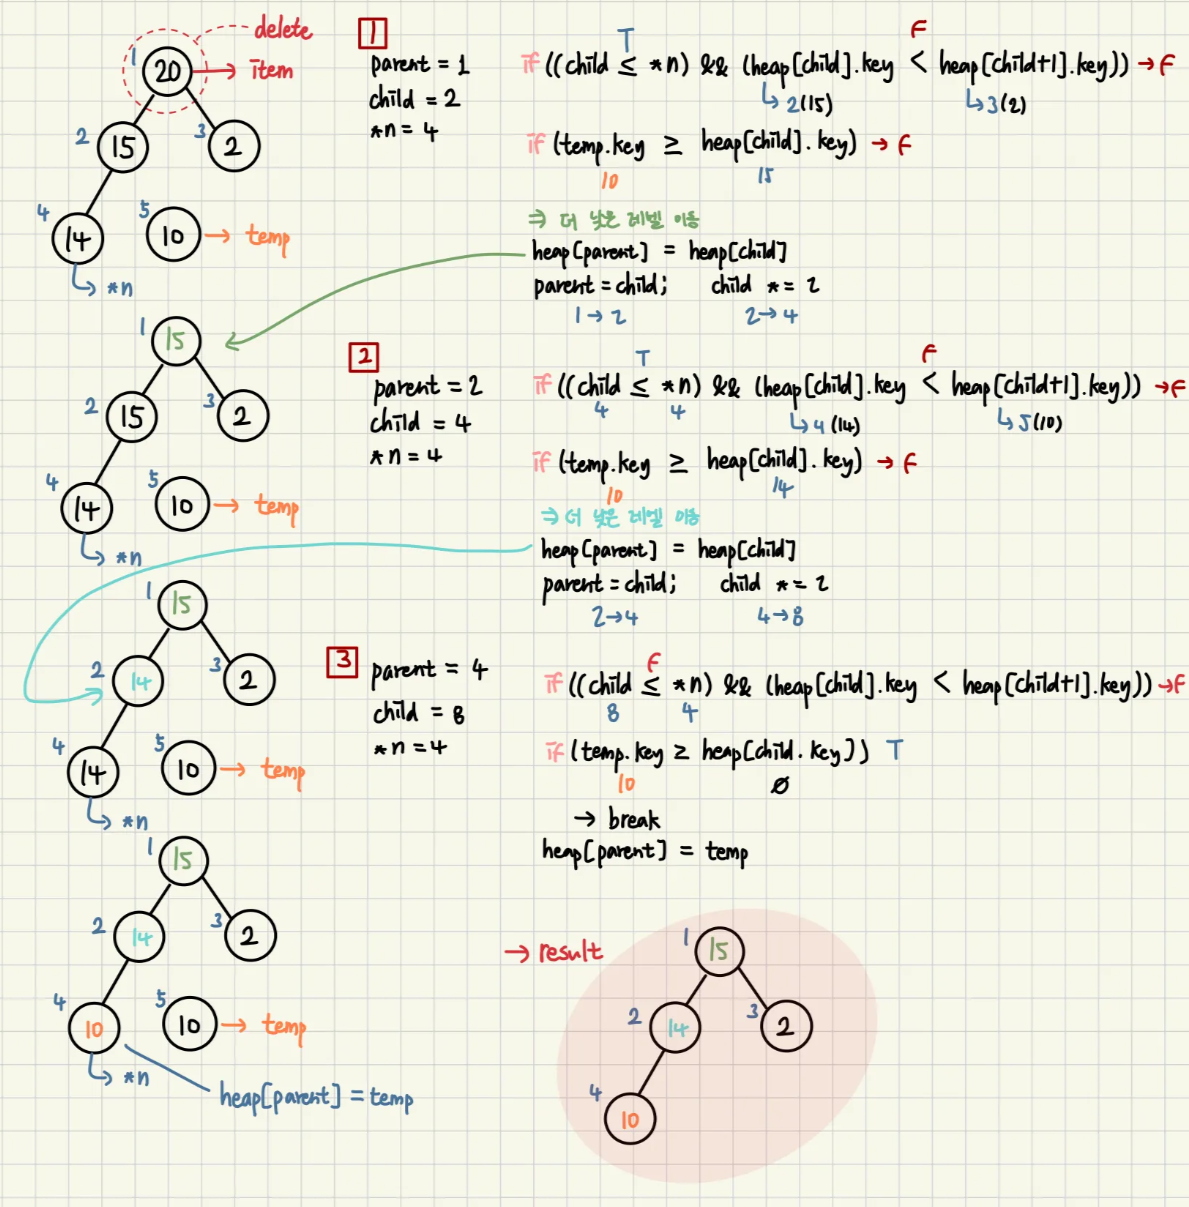 delete
1
20 → item
2
15
3
2
4
14
5
10 → temp
*n
1
parent = 1
child = 2
*n = 4
T
F
if ((child ≤ *n) && (heap[child].key < heap[child+1].key)) → F
2(15)
3(2)
if (temp.key ≥ heap[child].key) → F
10
15
⇒ 더 낮은 레벨 이동
heap[parent] = heap[child]
parent = child; child *= 2
1 → 2
2 → 4
1
15
2
15
3
2
4
14
5
10 → temp
*n
2
parent = 2
child = 4
*n = 4
T
F
if ((child ≤ *n) && (heap[child].key < heap[child+1].key)) → F
4
4
4(14)
5(10)
if (temp.key ≥ heap[child].key) → F
10
14
⇒ 더 낮은 레벨 이동
heap[parent] = heap[child]
parent = child; child *= 2
2→4
4→8
1
15
2
14
3
2
4
14
5
10 → temp
*n
3
parent = 4
child = 8
*n = 4
F
if ((child ≤ *n) && (heap[child].key < heap[child+1].key)) → F
8
4
if (temp.key ≥ heap[child.key]) T
10
∅
→ break
heap[parent] = temp
1
15
2
14
3
2
4
10
5
10 → temp
*n
heap[parent] = temp
→ result
1
15
2
14
3
2
4
10